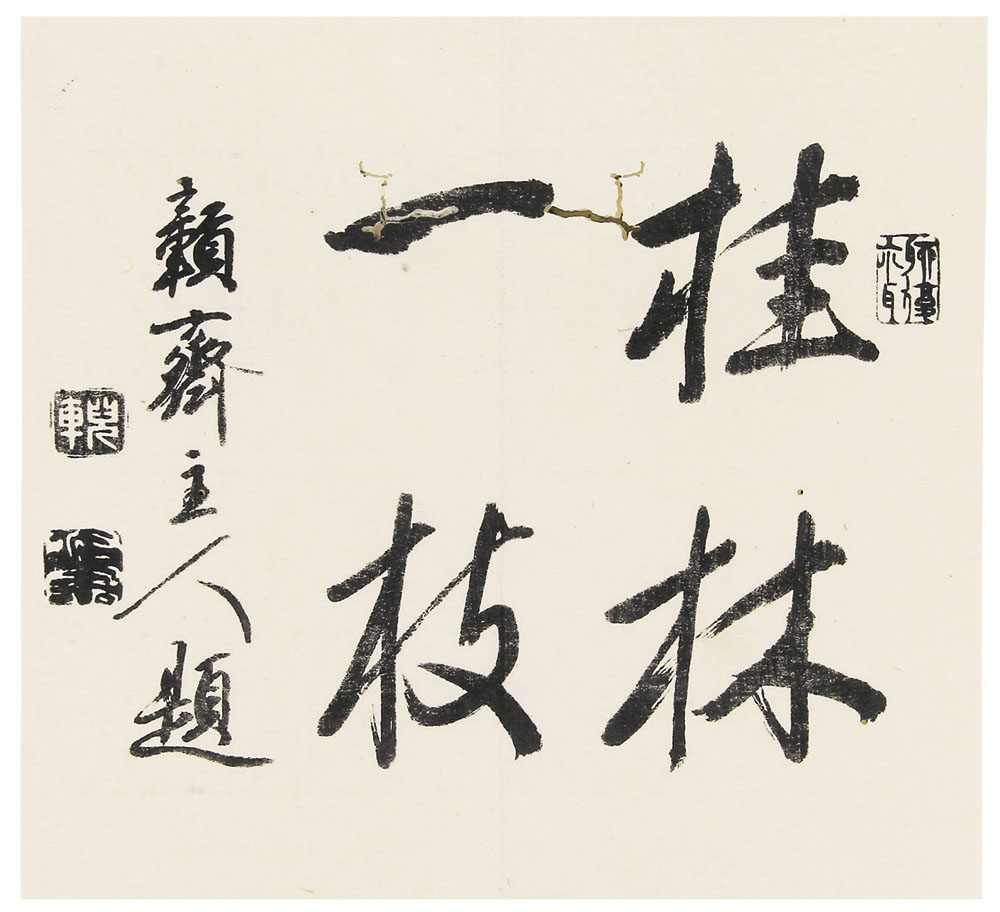 桂林
一枝
齋主人題